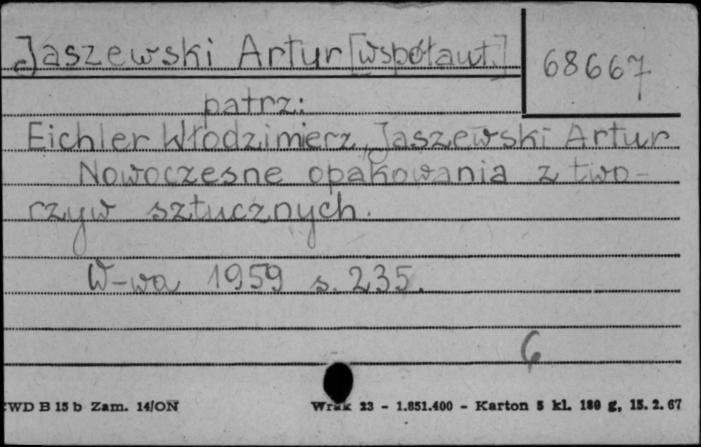 Jaszewski Artur [współaut.]
68667
patrz:
Eichler Włodzimierz, Jaszewski Artur
Nowoczesne opakowania z two-
rzyw sztucznych.
W-wa 1959 s. 235.
6
WD B 15 b Zam. 14/ON
Wrak 23 - 1.851.400 - Karton 5 kl. 180 g, 15. 2. 67